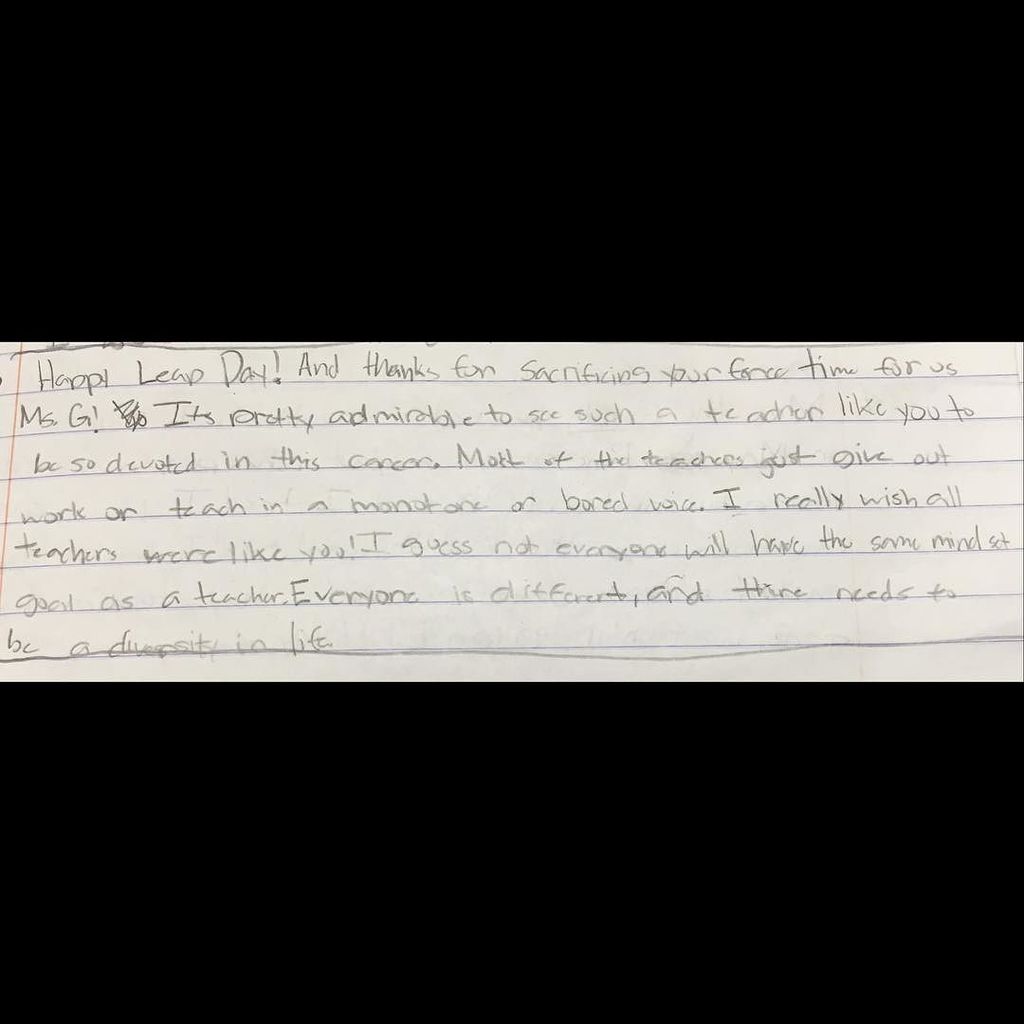 Happy Leap Day! And thanks for sacrificing your time for us
Ms. G! Its pretty admirable to see such a teacher like you to
be so devoted in this career. Most of the teachers just give out
work or teach in a monotone or bored voice. I really wish all
teachers were like you! I guess not everyone will have the same mind set
goal as a teacher. Everyone is different, and there needs to
be a diversity in life.